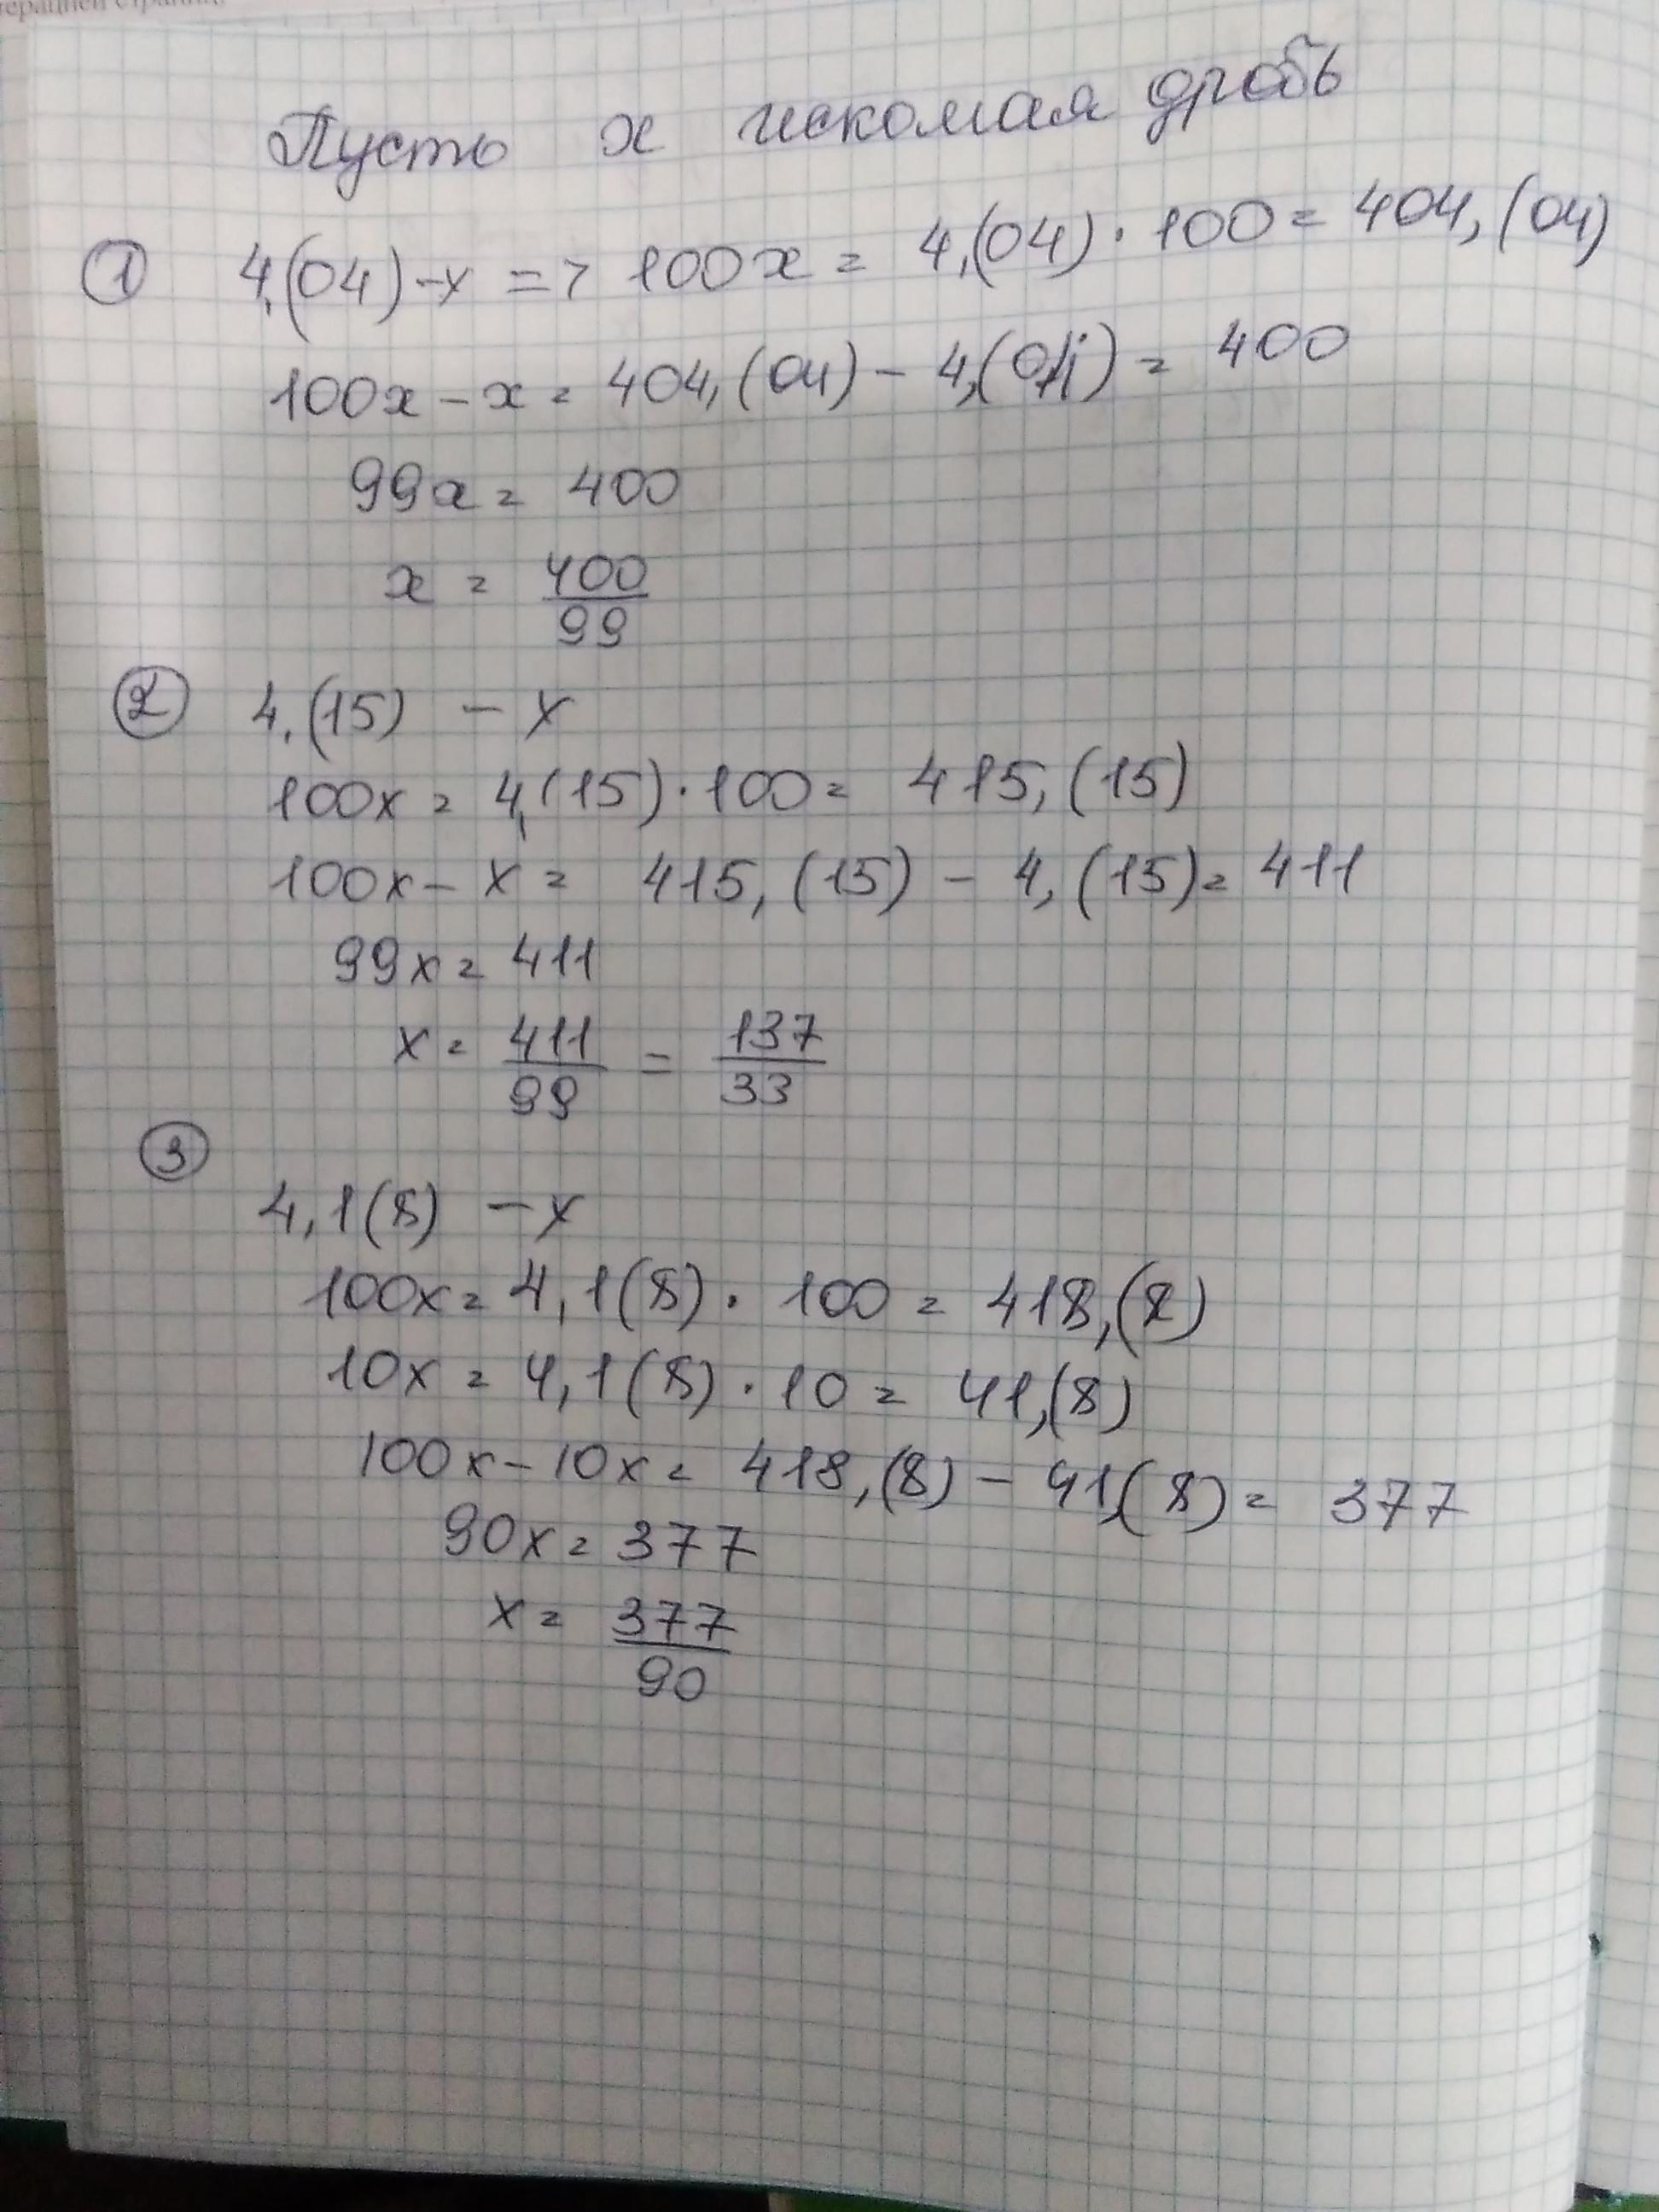 Пусть x искомая дробь
① 4,(04) - x => 100x = 4,(04) · 100 = 404,(04)
100x - x = 404,(04) - 4,(04) = 400
99x = 400
x = 400/99
② 4,(15) - x
100x = 4,(15) · 100 = 415,(15)
100x - x = 415,(15) - 4,(15) = 411
99x = 411
x = 411/99 = 137/33
③
4,1(8) - x
100x = 4,1(8) · 100 = 418,(8)
10x = 4,1(8) · 10 = 41,(8)
100x - 10x = 418,(8) - 41,(8) = 377
90x = 377
x = 377/90